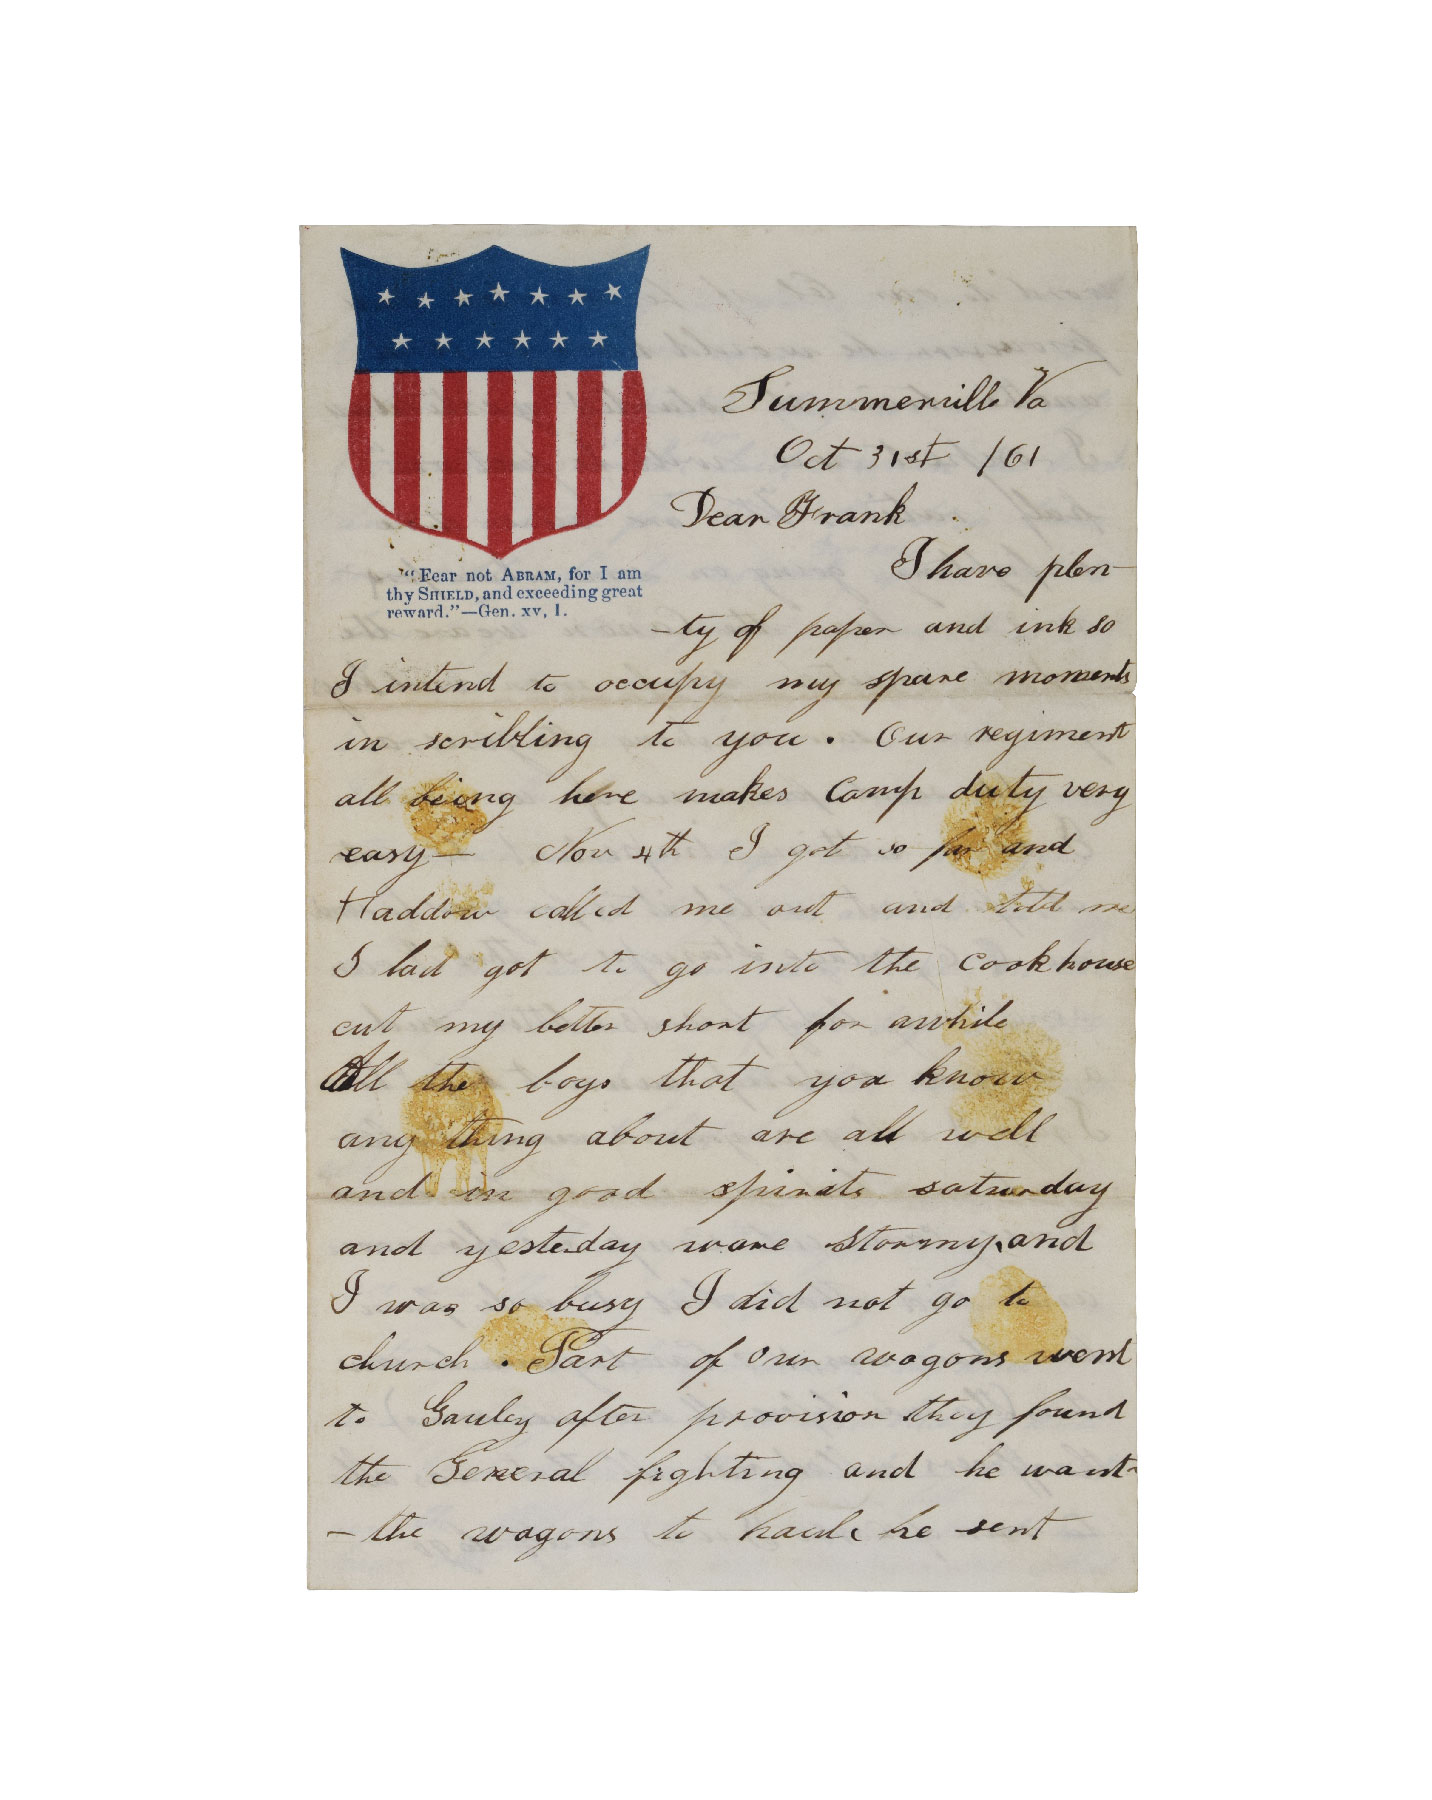 "Fear not ABRAM, for I am
thy SHIELD, and exceeding great
reward."—Gen. xv, I.
Summerville Va
Oct 31st /61
Dear Frank
I have plen-
-ty of paper and ink so
I intend to occupy my spare moments
in scribling to you. Our regiment
all being here makes Camp duty very
easy— Nov 4th I got so far and
Haddow called me out and told me
I had got to go into the cookhouse
cut my letter short for awhile
All the boys that you know
any thing about are all well
and in good spirits saturday
and yesterday ware stormy, and
I was so busy I did not go to
church. Part of our wagons went
to Gauley after provision they found
the General fighting and he want-
- the wagons to haul he sent